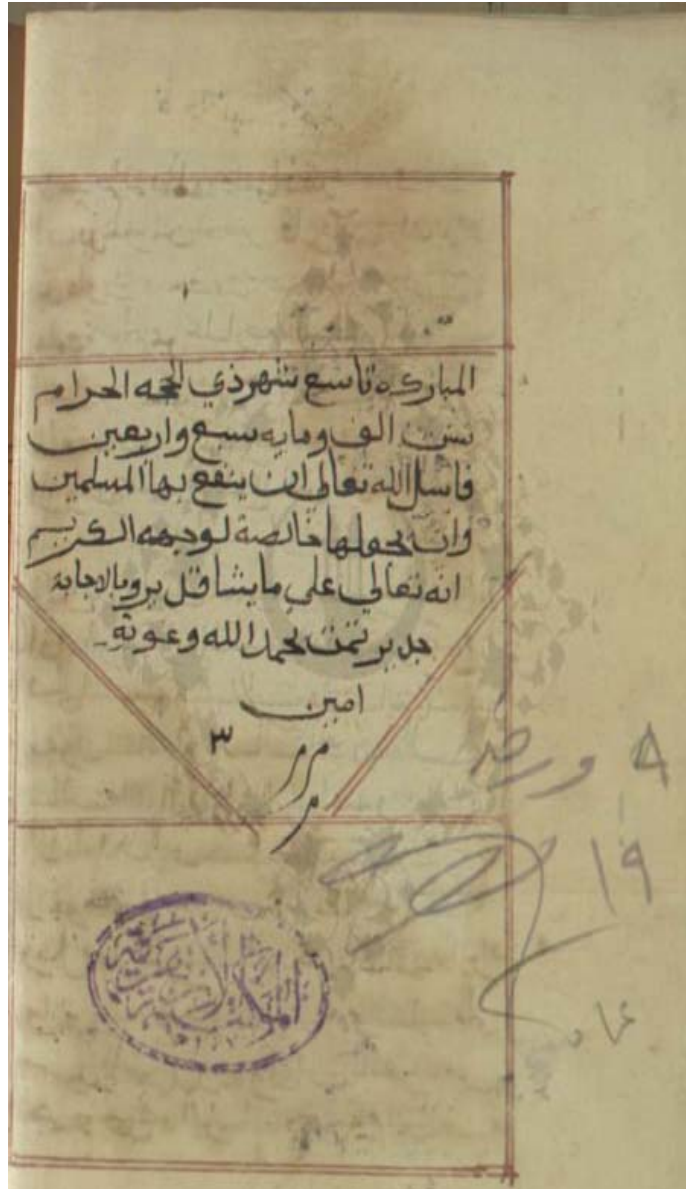 المباركه تاسع شهر ذي الحجه الحرام
سنت الف ومايه سبع واربعين
فاسل الله تعالي ان ينفع بها المسلمين
وان يجعلها خالصة لوجهه الكريم
انه تعالي علي ما يشا قدير وبالاجابة
جدير تمت بحمد الله وعونه
امين
٣
م م
م
ورقه
١٩